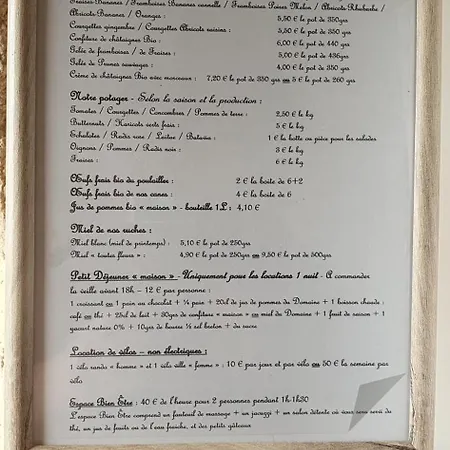 Fraises-Bananes / Framboises Bananes vanille / Framboises Poires Melon / Abricots Rhubarbe /
Abricots-Bananes / Oranges : 5,50 € le pot de 350grs
Courgettes gingembre / Courgettes Abricots raisins : 5,50 € le pot de 350 grs
Confiture de châtaignes Bio : 6,00 € le pot de 440 grs
Gelée de framboises / de Fraises : 5,00 € le pot de 436grs
Gelée de Prunes sauvages : 4,00 € le pot de 350 grs
Crème de châtaignes Bio avec morceaux : 7,20 € le pot de 350 grs ou 5 € le pot de 260 grs
Notre potager - Selon la saison et la production :
Tomates / Courgettes / Concombres / Pommes de terre : 2,50 € le kg
Butternuts / Haricots verts frais : 5 € le kg
Echalotes / Radis rose / Laitue / Batavia : 1 € la botte ou pièce pour les salades
Oignons / Pommes / Radis noir : 3 € le kg
Fraises : 6 € le kg
Œufs frais bio du poulailler : 2 € la boite de 6+2
Œufs frais bio de nos canes : 4 € la boite de 6
Jus de pommes bio « maison » - bouteille 1L : 4,10 €
Miel de nos ruches :
Miel blanc (miel de printemps) : 5,10 € le pot de 250grs
Miel « toutes fleurs » : 4,90 € le pot de 250grs ou 9,50 € le pot de 500grs
Petit Déjeuner « maison » - Uniquement pour les locations 1 nuit - A commander
la veille avant 18h – 12 € par personne :
1 croissant ou 1 pain au chocolat + ¼ pain + 20cl de jus de pommes du Domaine + 1 boisson chaude :
café ou thé + 25cl de lait + 30grs de confiture « maison » ou miel du Domaine + 1 fruit de saison + 1
yaourt nature 0% + 10grs de beurre ½ sel breton + du sucre
Location de vélos – non électriques :
1 vélo rando « homme » et 1 vélo ville « femme » : 10 € par jour et par vélo ou 50 € la semaine par
vélo
Espace Bien Être : 40 € de l'heure pour 2 personnes pendant 1h-1h30
L'espace Bien Être comprend un fauteuil de massage + un jacuzzi + un salon détente où vous sera servi du
thé, un jus de fruits ou de l'eau fraîche, et des petits gâteaux